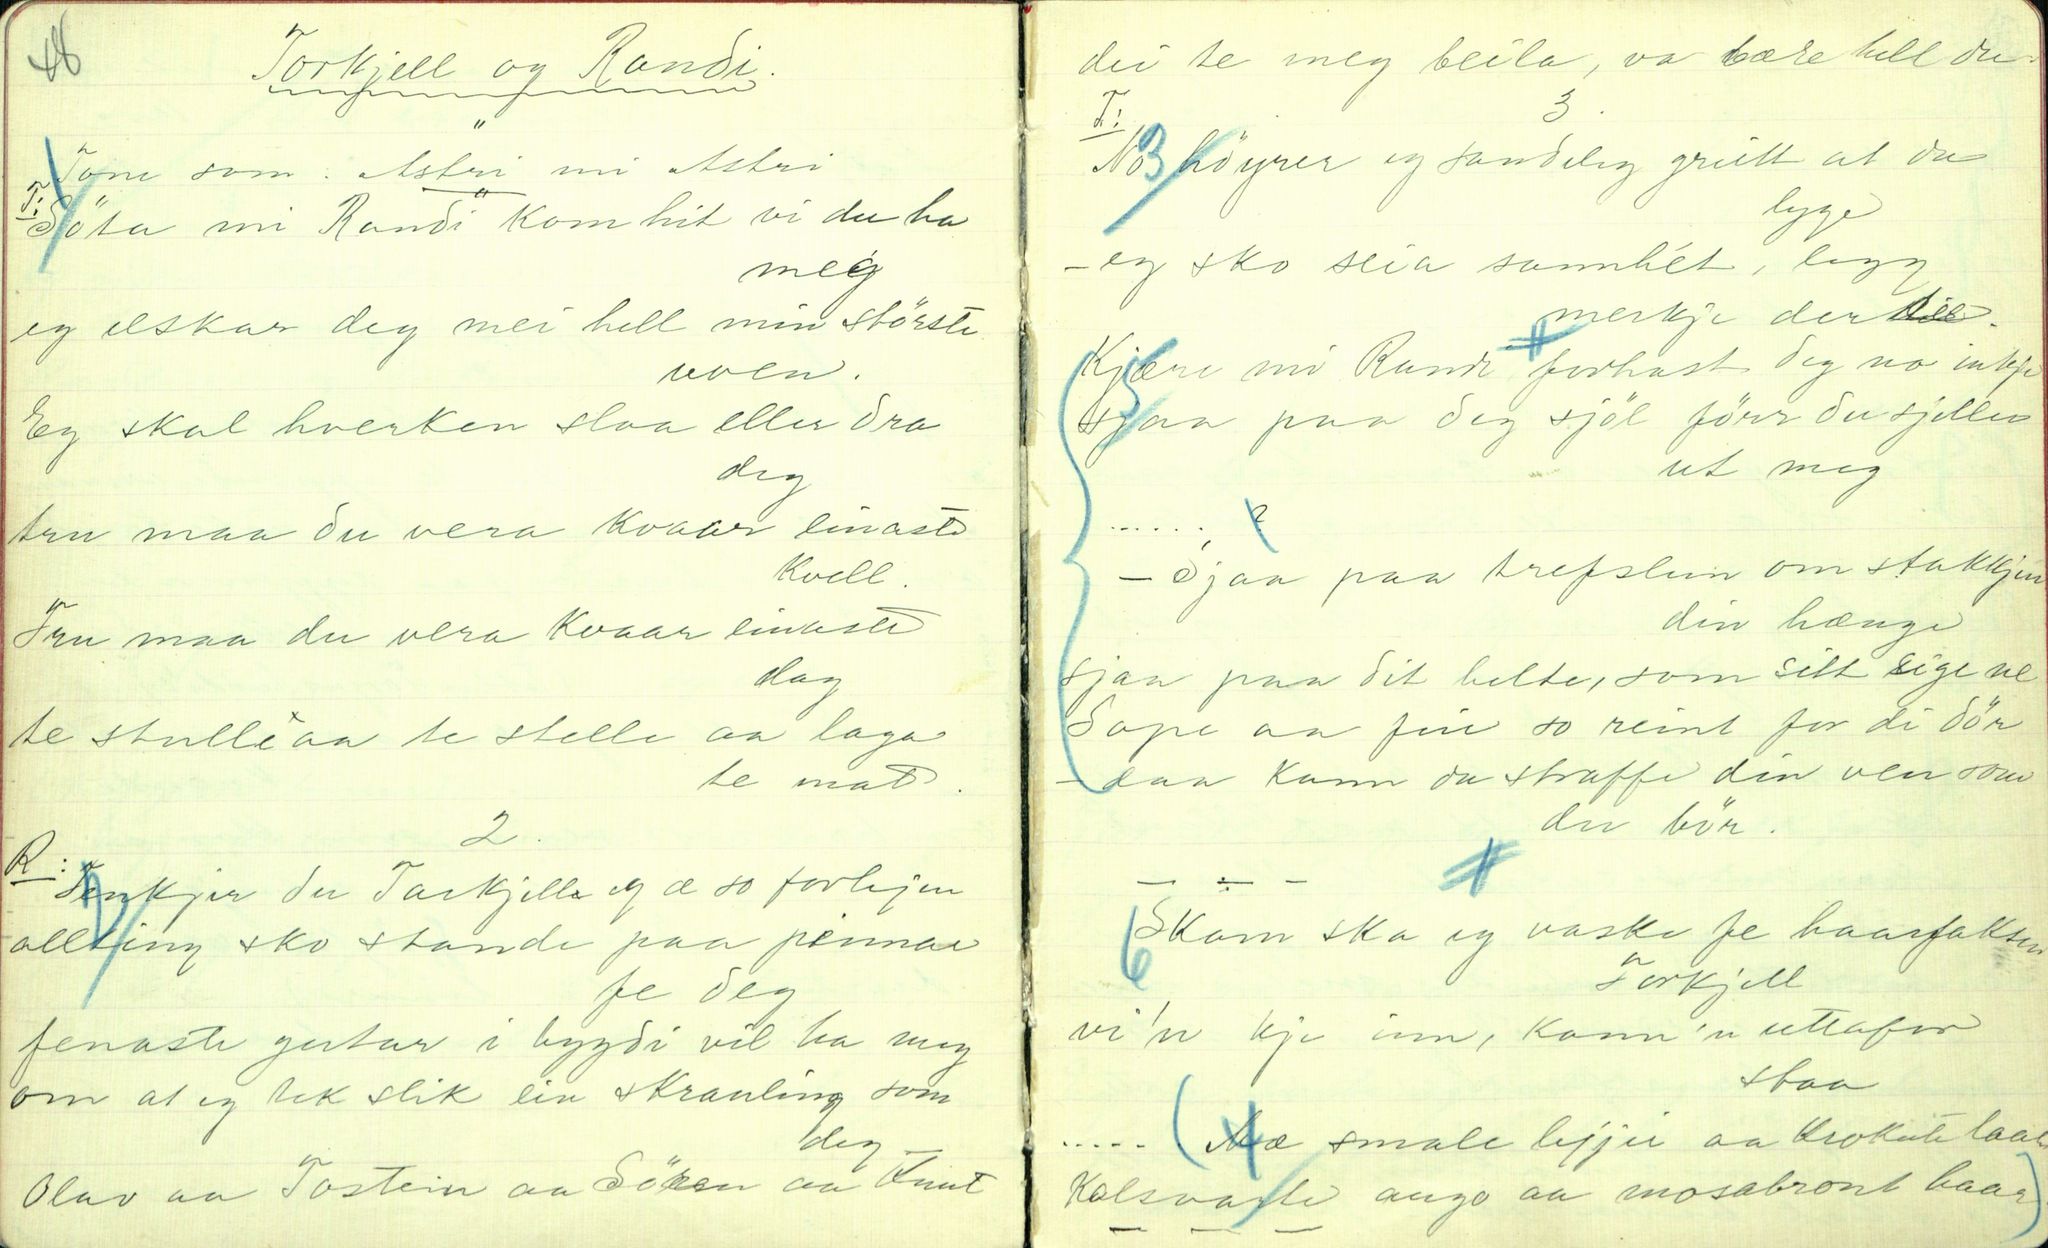 Torkjell og Randi.
Tone som: Astri mi Astri
T:
Söta mi Randi kom hit vi du ha
meg
eg elskar deg mei hell min störste
uven.
Eg skal hverken slaa eller dra
deg
tru maa du vera kvaar einaste
kvell.
Tru maa du vera kvaar einaste
dag
te stulle aa te stelle aa laga
te mat.
2.
R:
2
Tenkjer du Torkjell eg æ so forlejen
allting sko stande paa pinnar
fe deg
fenaste gutar i bygdi vil ha meg
om at eg tek slik ein skrauling som
deg
Olav aa Tostein aa Sören aa Knut
dei te meg beila, va bære hell du
3.
T:
3
No höyrer eg sandeleg greitt at du
lyge
– eg sko seia sannhét, legg
merkje der till.
5
Kjære mi Randi # forhast deg no inkje
sjaa paa deg sjöl förr du sjeller
ut meg
...... ?
– Sjaa paa trefslun om stakkjen
din hænge
sjaa paa dit belte, som sitt sige ne
Sope aa fei so reint for di dör
– daa kann du straffe din ven som
du bör.
#
– – –
6
Skam ska eg vaske fe haarfaksen
Torkjell
vi'n kje inn, kann'n uttafor
staa
..... (4 Mæ smale lejjer aa krokute laar
Kolsvarte augo aa mosabront haar)
– – –